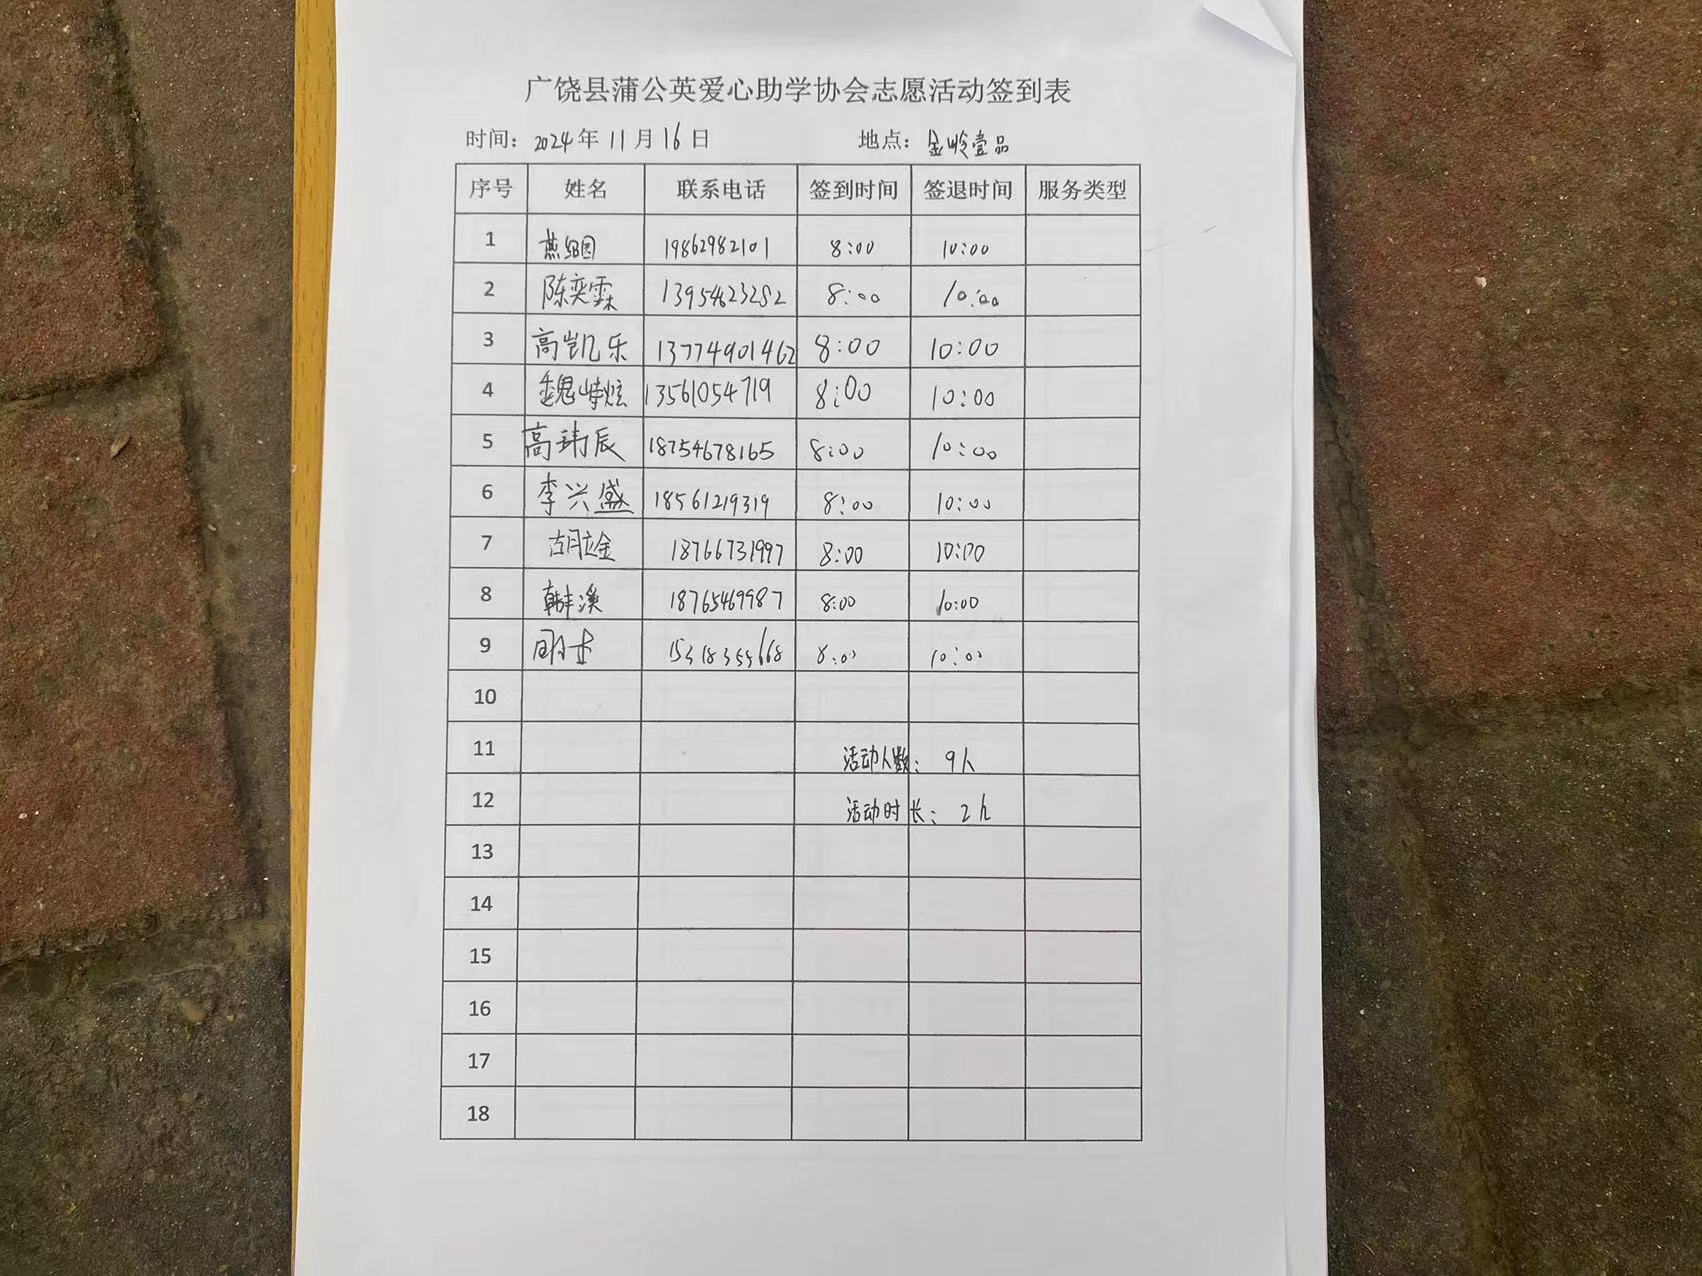 广饶县蒲公英爱心助学协会志愿活动签到表
时间：2024年11月16日 地点：金岭壹品
序号 姓名 联系电话 签到时间 签退时间 服务类型
1 19862982101 8:00 10:00
2 陈奕霖 13954623282 8:00 10:00
3 高凯乐 13774901462 8:00 10:00
4 魏峙炫 13561054719 8:00 10:00
5 高玮辰 18754678165 8:00 10:00
6 李兴盛 18561219319 8:00 10:00
7 18766731997 8:00 10:00
8 韩丰溪 18765469987 8:00 10:00
9 15318355668 8:00 10:00
10
11 活动人数：9人
12 活动时长：2h
13
14
15
16
17
18